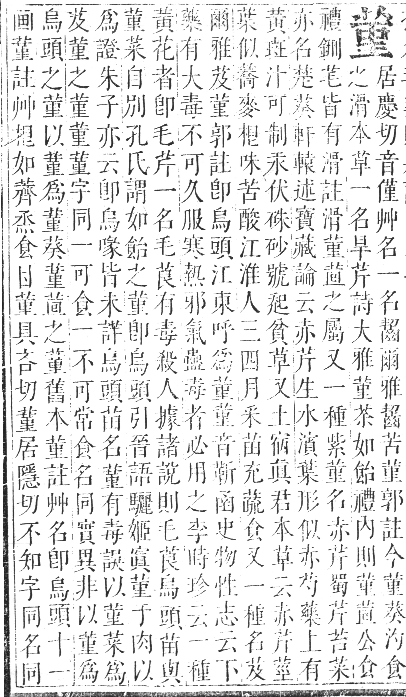 菫
居慶切音僅艸名一名齧爾雅齧苦菫郭註今菫葵汋食
之滑本草一名旱芹詩大雅菫荼如飴禮內則菫萓公食
禮鉶芼皆有滑註滑菫萓之屬又一種紫菫名赤芹蜀芹苔菜
亦名楚葵軒轅述寶藏論云赤芹生水濱葉形似赤芍藥上有
黃斑汁可制汞伏硃砂號起貧草又土宿眞君本草云赤芹莖
葉似蕎麥棍味苦酸江淮人三四月采苗充蔬食又一種名芨
爾雅芨菫郭註卽烏頭江東呼爲菫菫音靳函史物性志云下
藥有大毒不可久服寒熱邪氣蠱毒者必用之李時珍云一種
黃花者卽毛芹一名毛茛有毒殺人據諸說則毛茛烏頭苗與
菫菜自別孔氏謂如飴之菫卽烏頭引晉語驪姬寘菫于肉以
爲證朱子亦云卽烏喙皆未詳烏頭苗名菫有毒誤以菫菜爲
芨菫之菫菫字同一可食一不可常食名同實異非以菫爲
烏頭之菫以菫爲菫葵菫萓之菫舊本菫註艸名卽烏頭十一
画菫註艸棍如薺烝食甘菫具吝切菫居隱切不知字同名同